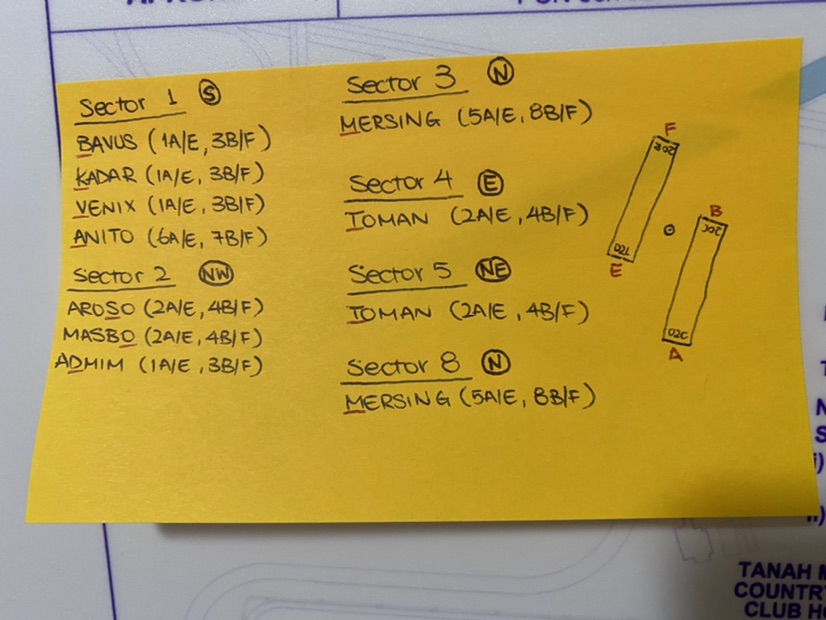 Sector 1 (S)
BAVUS (1A/E, 3B/F)
KADAR (1A/E, 3B/F)
VENIX (1A/E, 3B/F)
ANITO (6A/E, 7B/F)
Sector 2 (NW)
AROSO (2A/E, 4B/F)
MASBO (2A/E, 4B/F)
ADMIM (1A/E, 3B/F)
Sector 3 (N)
MERSING (5A/E, 8B/F)
Sector 4 (E)
TOMAN (2A/E, 4B/F)
Sector 5 (NE)
TOMAN (2A/E, 4B/F)
Sector 8 (N)
MERSING (5A/E, 8B/F)
F
B
02L
E
02C
A
TANAH M
COUNTRY
CLUB HO